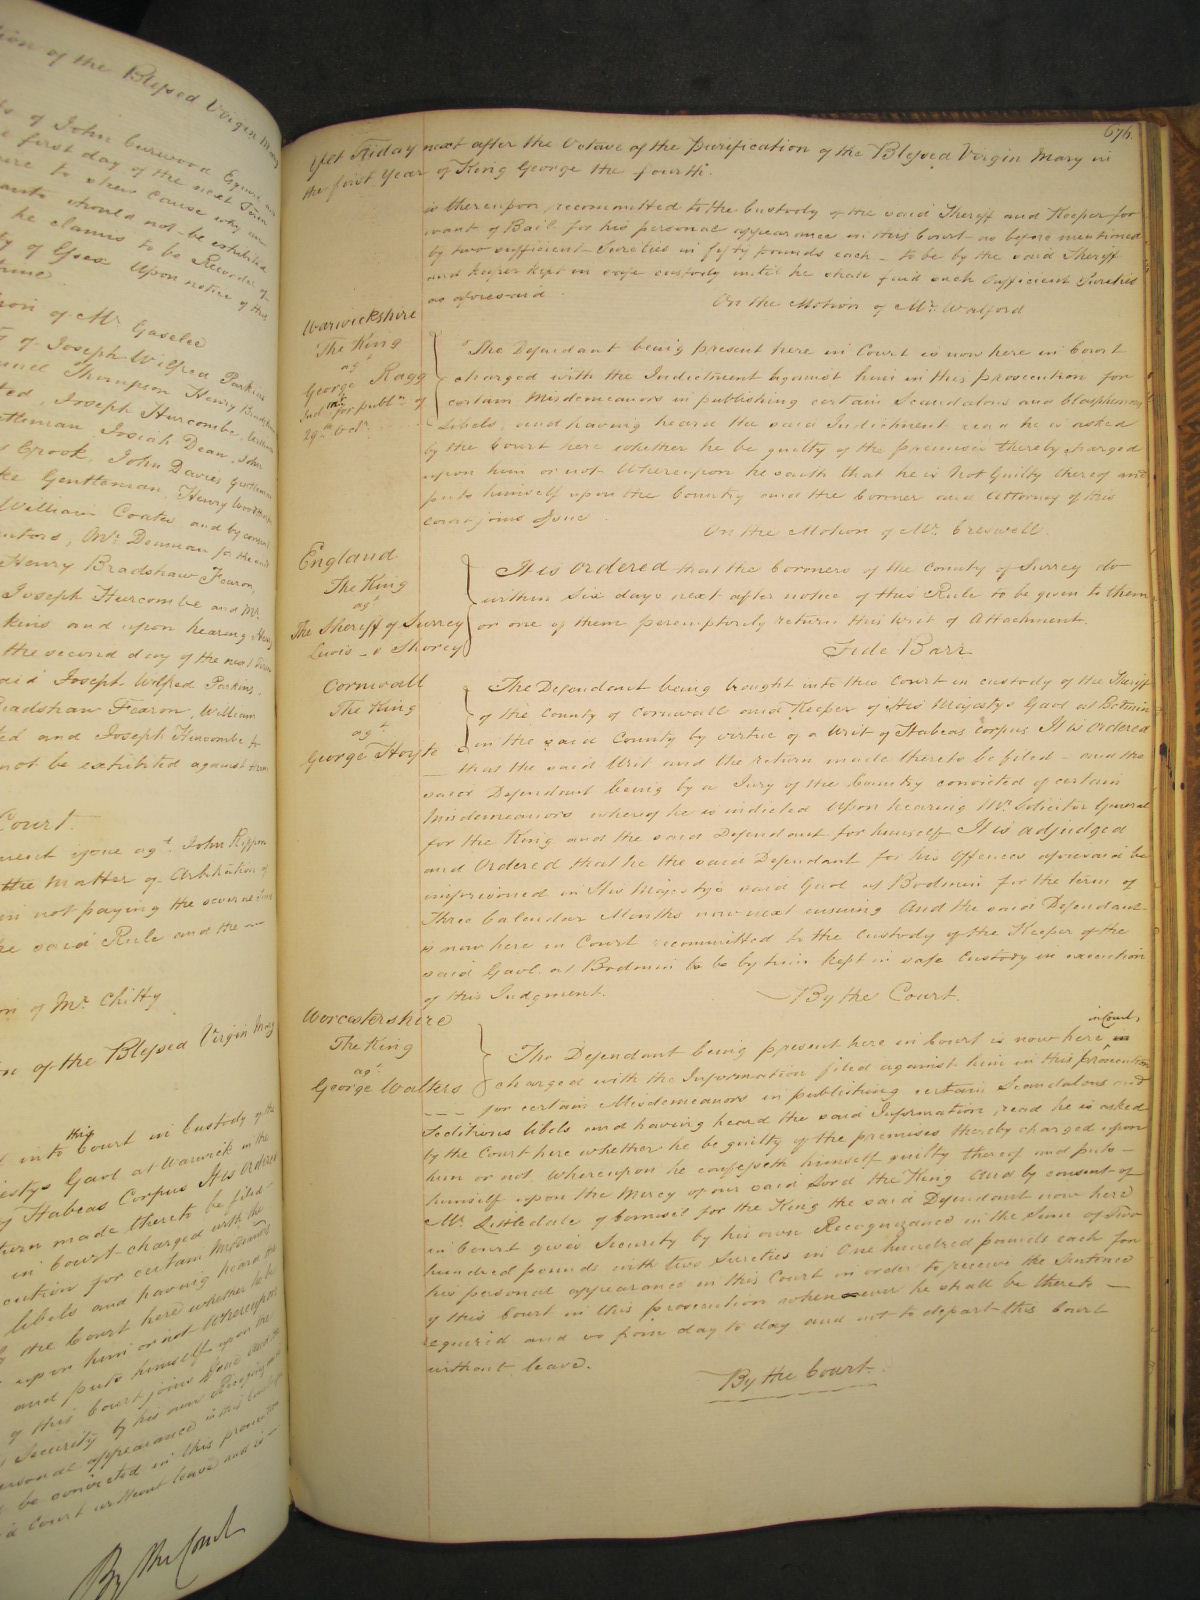 ion of the Blessed Virgin Mary
of John Curwood Esquire
first day of the next Term
to shew cause why an
should not be exhibited
he claims to be Recorder of
ty of Essex Upon notice of this
tion of Mr. Gaselee
of Joseph Wilfred Parkins
Thompson Henry Bradshaw
ted, Joseph Hurcombe, William
ttleman Josiah Dean, John
Crook, John Davies Gentleman
ke Gentleman, Henry Woodthorpe
William Coates and by consent
Mr. Denman for the said
Henry Bradshaw Fearon,
Joseph Hurcombe and Mr.
kins and upon hearing
the second day of the next Term
aid Joseph Wilfred Parkins,
radshaw Fearon, William
ed and Joseph Hurcombe to
not be exhibited against them
Court.
ment agt. John Rippon
the Matter of Arbitration of
in not paying the several sums
he said Rule and the
on of Mr. Chitty
n of the Blessed Virgin Mary
into this Court in Custody of the
estys Gaol at Warwick in the
Habeas Corpus It is ordered
turn made thereto be filed
in Court charged with the
cution for certain Misdemrs
libels and having heard the
the Court here whether he be
upon him or not Whereupon
and puts himself upon the
of this Court joins Issue and
Security by his own Recognizance
ersonal appearance in this Court
be convicted in this prosecution
Court without leave and is
By the Court
676.
Yet Friday next after the Octave of the Purification of the Blessed Virgin Mary in
the first Year of King George the fourth.
is thereupon recommitted to the Custody of the said Sheriff and Keeper for
want of Bail for his personal appearance in this Court as before mentioned
by two sufficient Sureties in fifty pounds each - to be by the said Sheriff
and Keeper kept in safe custody until he shall find such sufficient Sureties
as aforesaid
On the Motion of Mr. Walford
Warwickshire
The King
agt
George Ragg
Indmt. for publn. of
29th. Octr.
The Defendant being present here in Court is now here in Court
charged with the Indictment against him in this prosecution for
certain Misdemeanors in publishing certain Scandalous and blasphemous
Libels, and having heard the said Indictment read he is asked
by the Court here whether he be guilty of the premises thereby charged
upon him or not Whereupon he saith that he is Not Guilty thereof and
puts himself upon the Country and the Coroner and Attorney of this
Court joins Issue
On the Motion of Mr. Creswell.
England
The King
agt
The Sheriff of Surrey
Lewis v Shorey
It is ordered that the Coroners of the County of Surrey do
within six days next after notice of this Rule to be given to them
or one of them peremptorily return this Writ of Attachment.
Side Barr
Cornwall
The King
agt
George Hoyte
The Defendant being brought into this Court in custody of the Sheriff
of the County of Cornwall and Keeper of His Majestys Gaol at Bodmin
in the said County by virtue of a Writ of Habeas Corpus It is ordered
that the said Writ and the return made thereto be filed - and the
said Defendant being by a Jury of the Country convicted of certain
Misdemeanors whereof he is indicted Upon hearing Mr. Solicitor General
for the King and the said Defendant for himself It is adjudged
and Ordered that he the said Defendant for his Offences aforesaid be
imprisoned in His Majestys said Gaol at Bodmin for the term of
Three Calendar Months now next ensuing And the said Defendant
is now here in Court recommitted to the Custody of the Keeper of the
said Gaol at Bodmin to be by him kept in safe Custody in execution
of this Judgment.
By the Court.
Worcestershire
The King
agt
George Walters
The Defendant being present here in Court is now here in Court,
charged with the Information filed against him in this prosecution
for certain Misdemeanors in publishing certain Scandalous and
Seditious libels and having heard the said Information, read he is asked
by the Court here whether he be guilty of the premises thereby charged upon
him or not Whereupon he confesseth himself guilty thereof and puts
himself upon the Mercy of our said Lord the King And by consent of
Mr. Littledale of Counsel for the King the said Defendant now here
in Court gives Security by his own Recognizance in the Sum of Two
hundred pounds with two Sureties in One hundred pounds each for
his personal appearance in this Court in order to receive the Sentence
of this Court in this prosecution whenever he shall be thereto
required and so from day to day and not to depart this Court
without leave.
By the Court